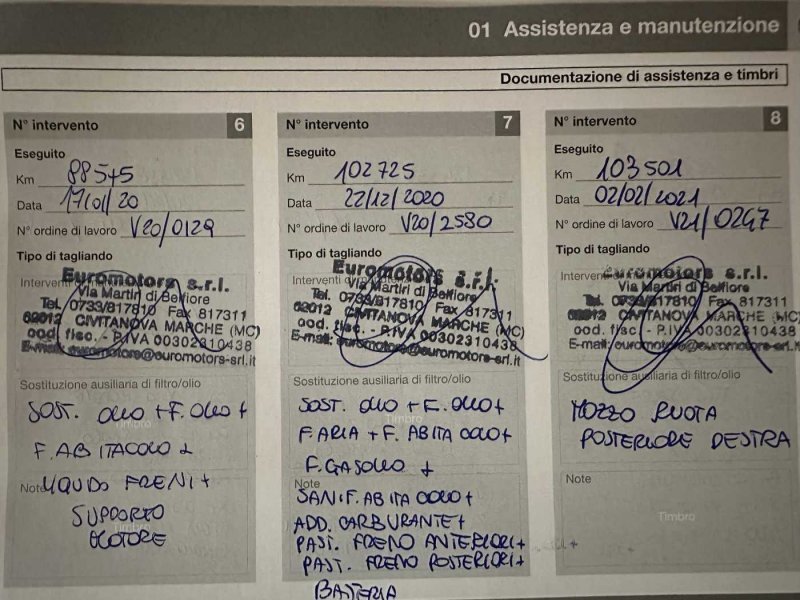 01 Assistenza e manutenzione
Documentazione di assistenza e timbri
N° intervento 6
Eseguito
Km 88545
Data 17/01/20
N° ordine di lavoro V20/0129
Tipo di tagliando
Euromotors s.r.l.
Via Martiri di Belfiore
Tel. 0733/817810 Fax 817311
62012 CIVITANOVA MARCHE (MC)
cod. fisc. - P.IVA 00302310438
E-mail: euromotors@euromotors-srl.it
Sostituzione ausiliaria di filtro/olio
SOST. OLIO + F. OLIO +
F. ABITACOLO +
Note LIQUIDO FRENI +
SUPPORTO
MOTORE
N° intervento 7
Eseguito
Km 102725
Data 22/12/2020
N° ordine di lavoro V20/2580
Tipo di tagliando
Euromotors s.r.l.
Via Martiri di Belfiore
Tel. 0733/817810 Fax 817311
62012 CIVITANOVA MARCHE (MC)
cod. fisc. - P.IVA 00302310438
E-mail: euromotors@euromotors-srl.it
Sostituzione ausiliaria di filtro/olio
SOST. OLIO + F. OLIO +
F. ARIA + F. ABITACOLO +
F. GASOLIO +
Note
SANIF. ABITACOLO +
ADD. CARBURANTE +
PAST. FRENO ANTERIORI +
PAST. FRENO POSTERIORI +
BATTERIA
N° intervento 8
Eseguito
Km 103501
Data 02/02/2021
N° ordine di lavoro V21/0247
Tipo di tagliando
Euromotors s.r.l.
Via Martiri di Belfiore
Tel. 0733/817810 Fax 817311
62012 CIVITANOVA MARCHE (MC)
cod. fisc. - P.IVA 00302310438
E-mail: euromotors@euromotors-srl.it
Sostituzione ausiliaria di filtro/olio
MOZZO RUOTA
POSTERIORE DESTRA
Note
Timbro